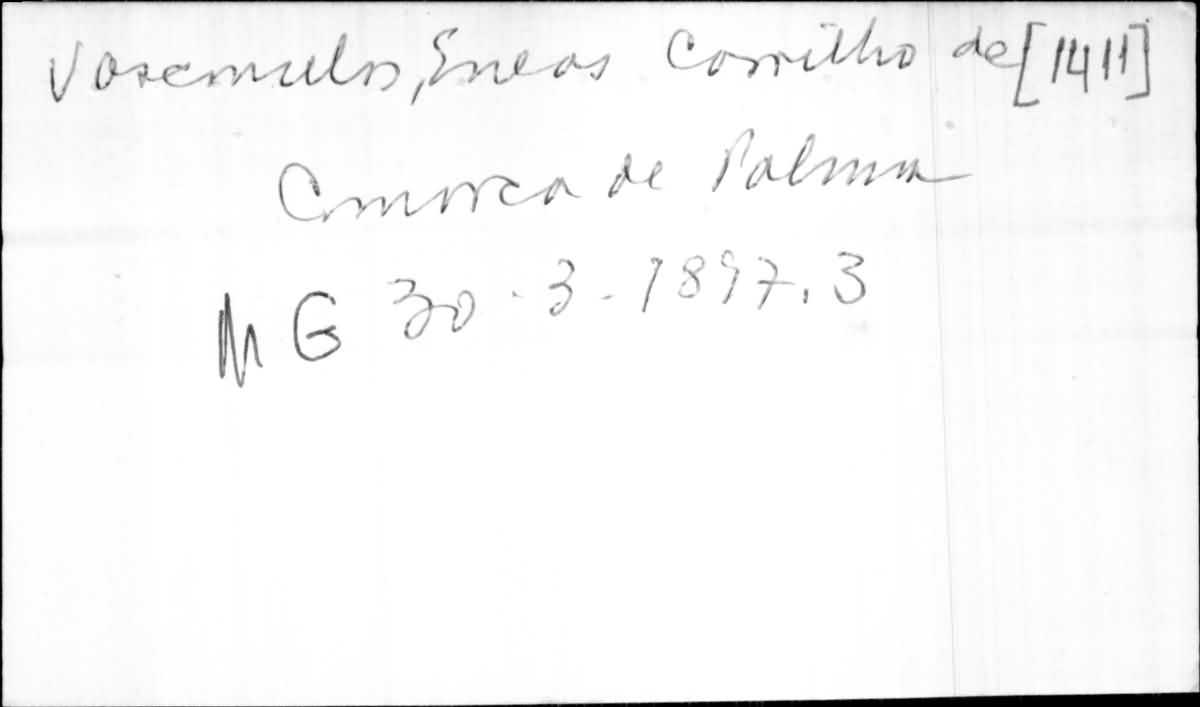 Vasconcelos, Eneas Carrilho de [1411]
Comarca de Palma
MG 30-3-1897.3